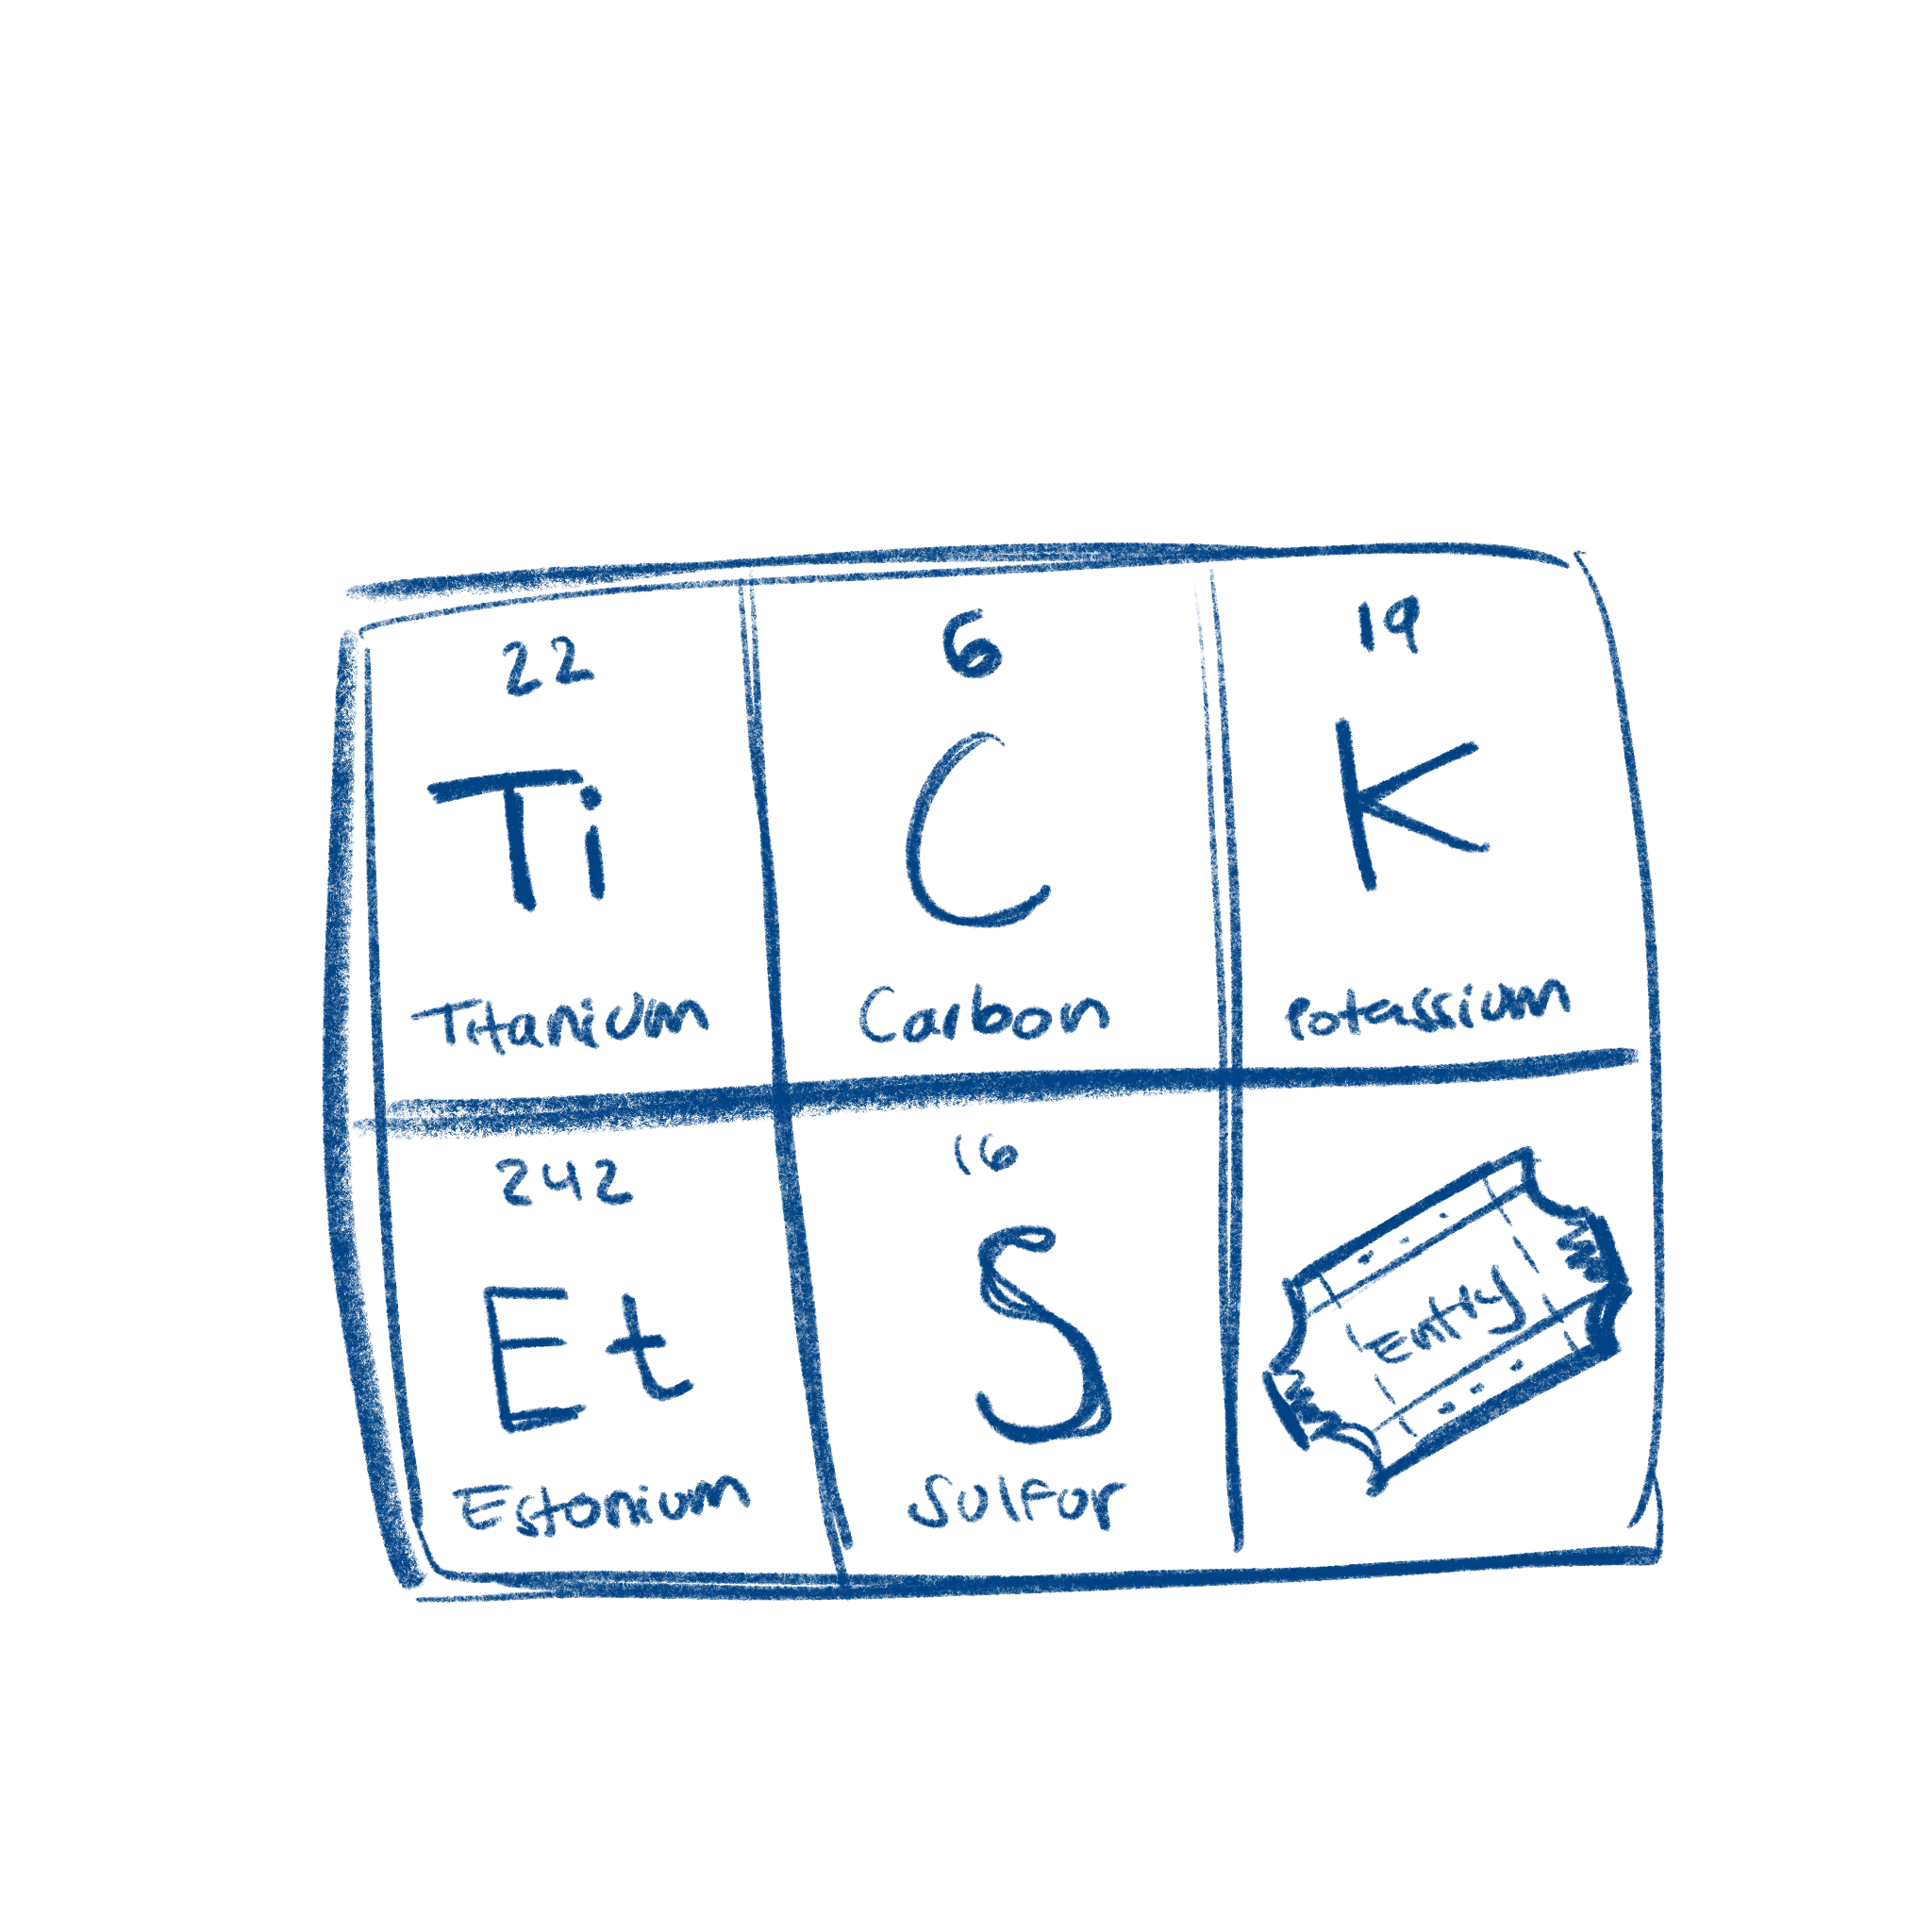 22
Ti
Titanium
6
C
Carbon
19
K
Potassium
242
Et
Estonium
16
S
Sulfur
Entry